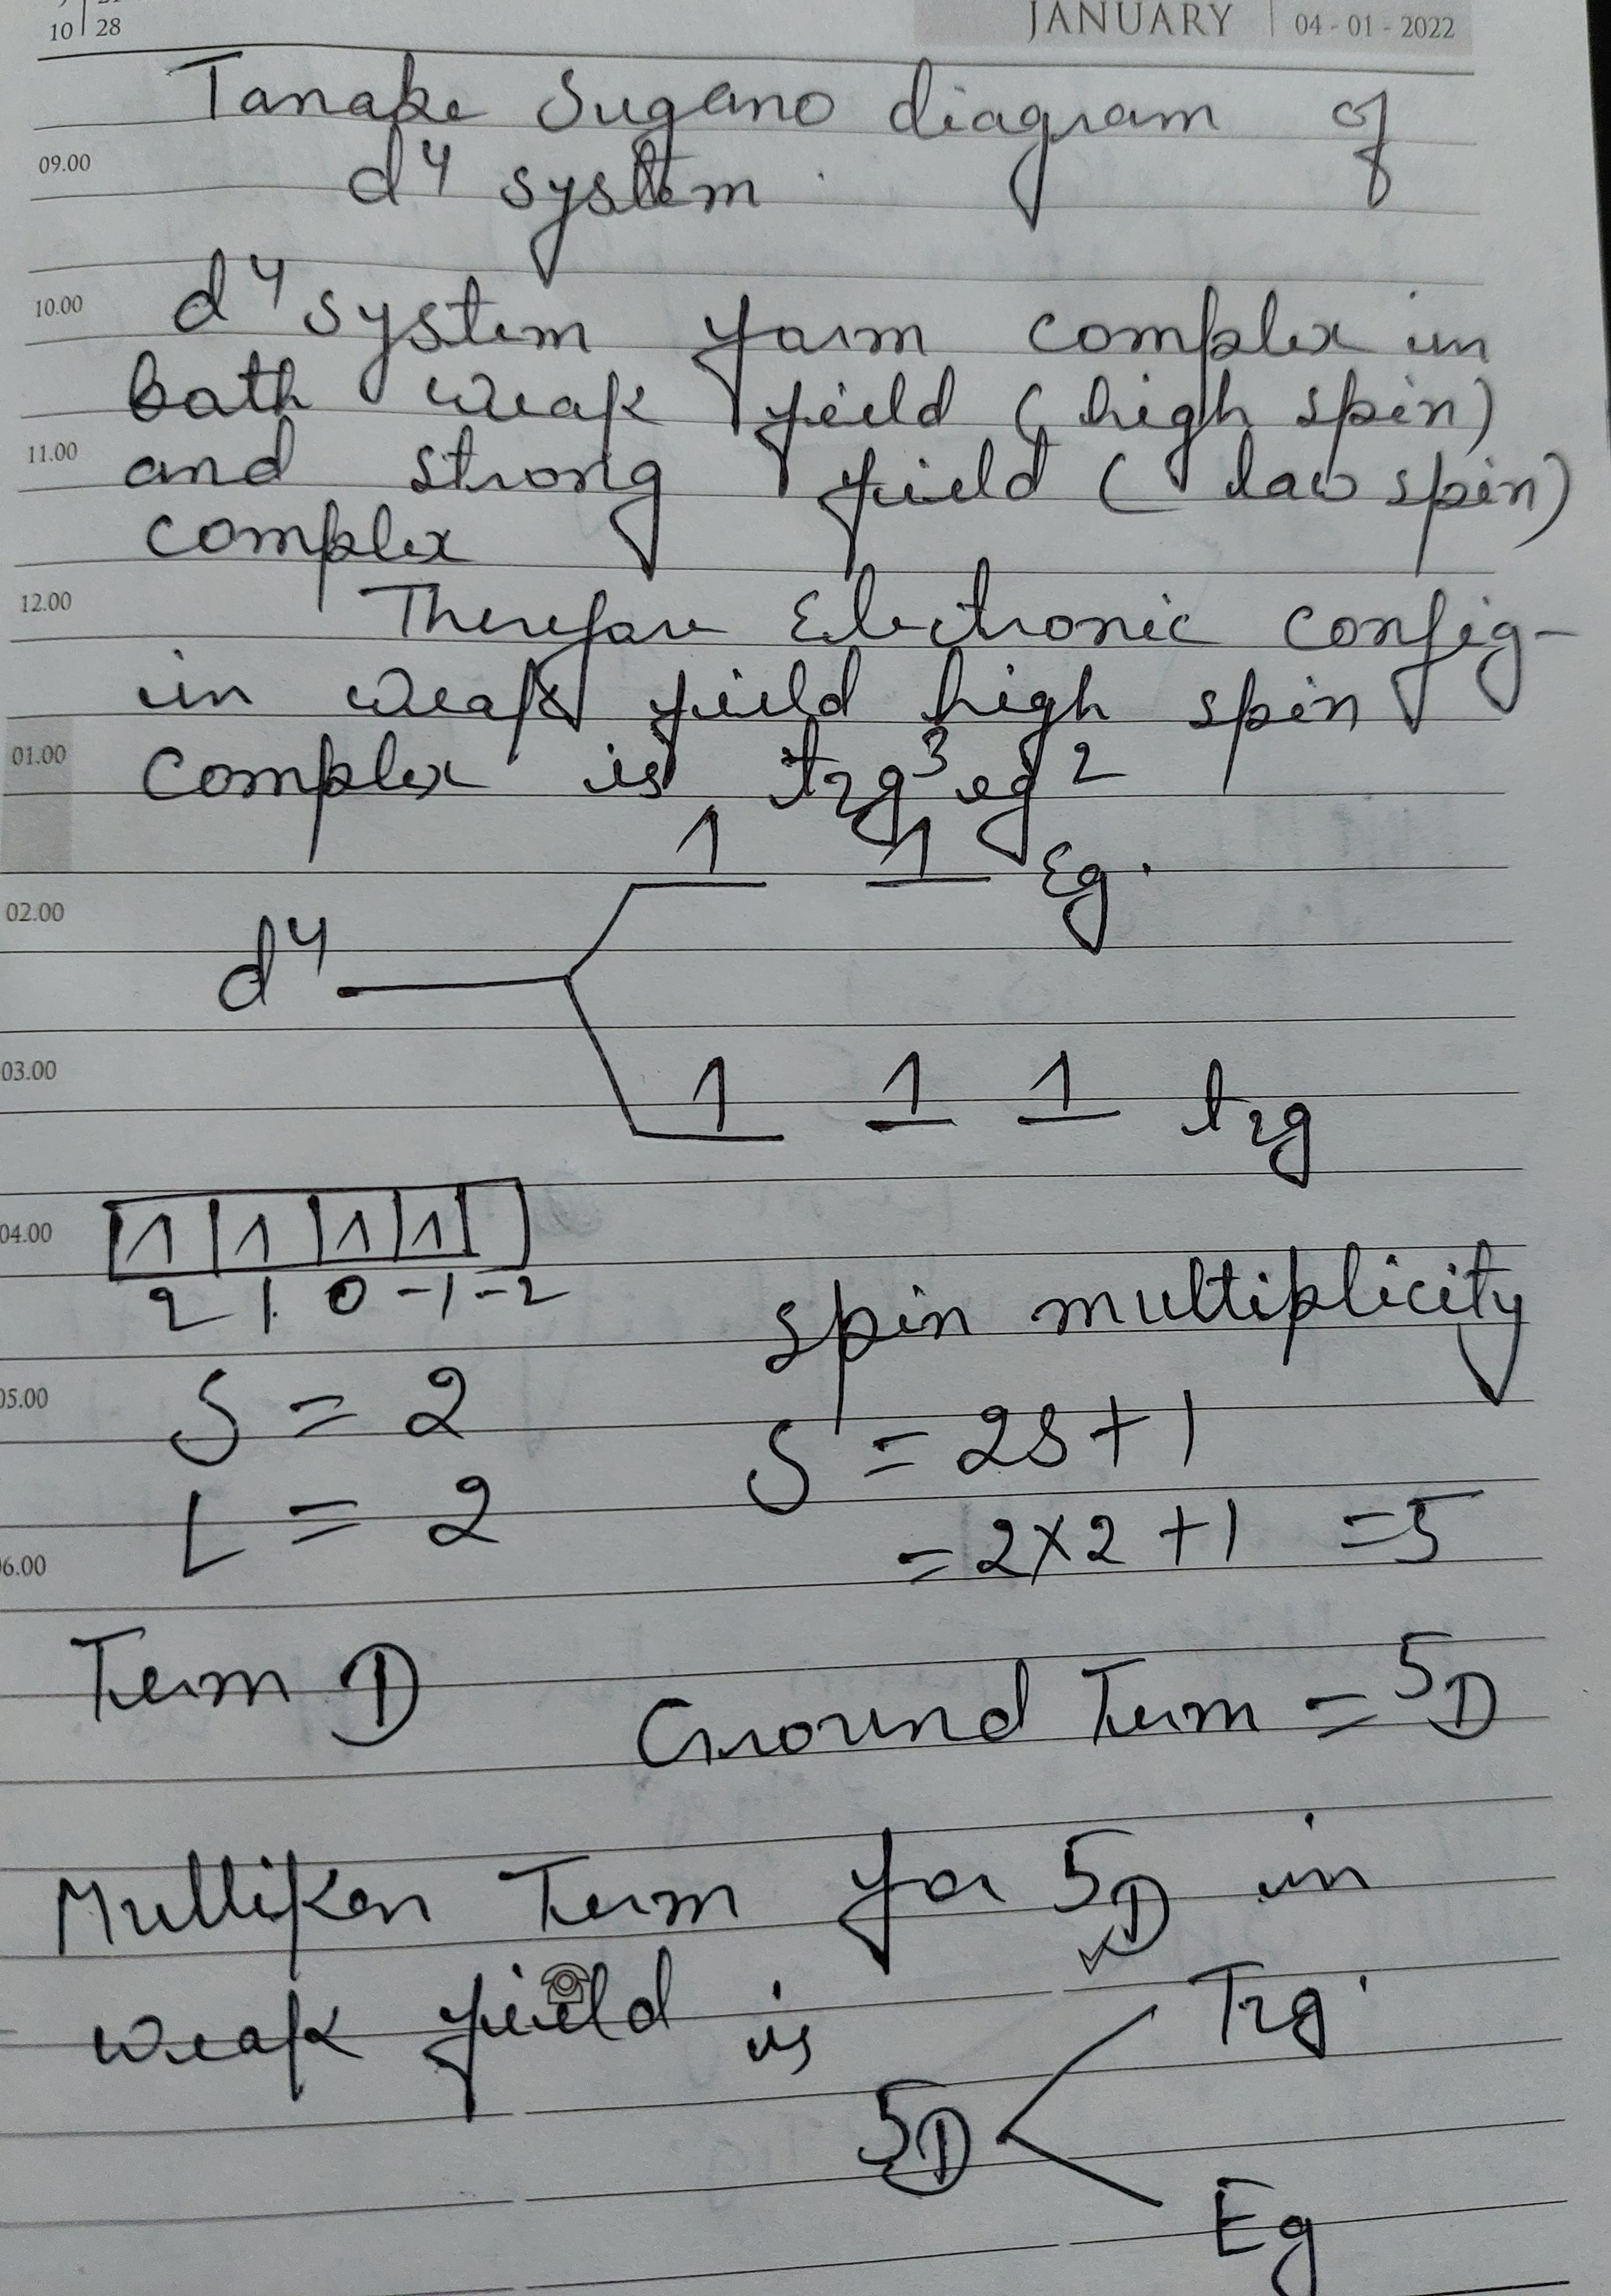 10 28
JANUARY 04-01-2022
Tanabe Sugano diagram of
09.00
d⁴ system
10.00
d⁴ system form complex in
both weak field (high spin)
11.00
and strong field (low spin)
complex
12.00
Therefore Electronic config-
in weak field high spin
01.00
complex is t2g³eg²
1 1 Eg.
02.00
d⁴
03.00
1 1 1 t2g
04.00
1 1 1 1
2 1 0 -1 -2
spin multiplicity
05.00
S = 2 S = 2S+1
L = 2 = 2×2+1 =5
06.00
Term D
Ground Term = ⁵D
Mulliken Term for 5D in
weak field is
T2g.
5D
Eg